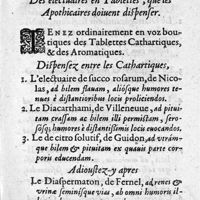 Des electuaires en Tablettes, que les
Apothicaires doiuent dispenser.
TENEZ ordinairement en voz bou-
tiques des Tablettes Cathartiques,
& des Aromatiques.
Dispensez entre les Cathartiques,
1. L'electuaire de succo rosarum, de Nico-
las, ad bilem flauam, aliósque humores te-
nues è distantioribus locis proliciendos.
2. Le Diacartami, de Villeneuue, ad pitui-
tam crassam ac bilem illi permistam, sero-
sósq; humores è distantissimis locis euocandos.
3. Le de citro solutif, de Guidon, ad vtrám-
que bilem & pituitam ex quauis parte cor-
poris educendam.
Adioustez-y apres
Le Diaspermaton, de Fernel, ad renes &
vrinæ seminisque vias, ab omni humoris il-